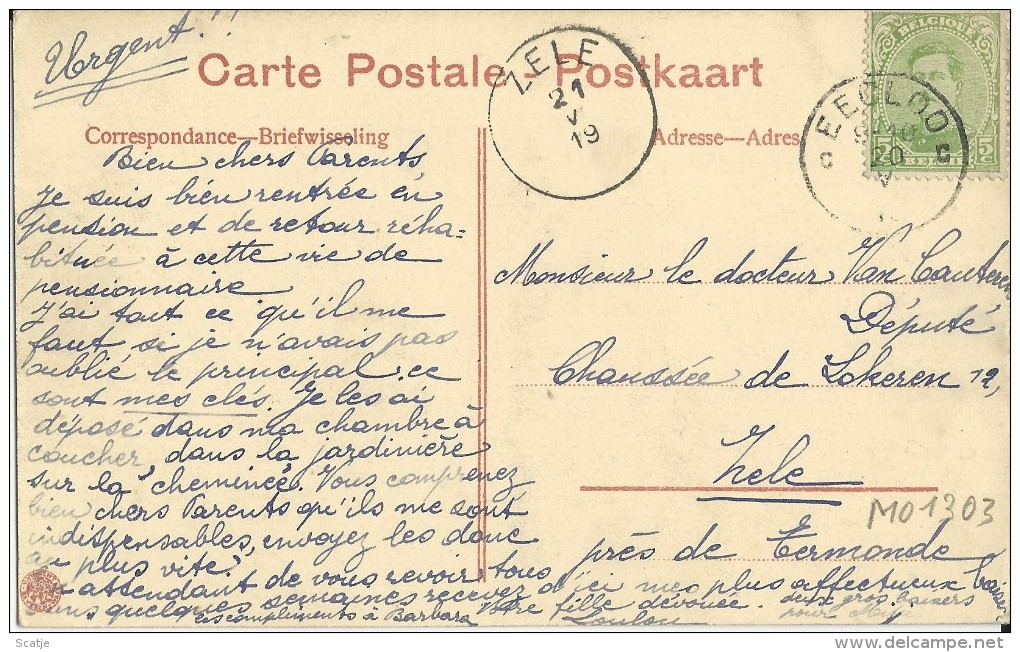 Urgent!!!
Carte Postale - Postkaart
Correspondance—Briefwisseling
Adresse—Adres
ZELE
21
V
19
BELGIQUE
EECLOO
20
V
C C
5
Bien chers Parents,
Je suis bien rentrée en
pension et de retour réha=
bituée à cette vie de
pensionnaire
J'ai tout ce qu'il me
faut si je n'avais pas
oublié le principal. ce
sont mes clés. Je les ai
déposé dans ma chambre à
coucher, dans la jardinière
sur la cheminée. Vous comprenez
bien chers Parents qu'ils me sont
indispensables, envoyez les donc
au plus vite.
attendant de vous revoir tous
dans quelques semaines recevez d'ici mes plus affectueux baisers
Votre fille dévouée.
Loulou
les compliments à Barbara
deux gros baisers
pour
Monsieur le docteur Van Cauteren
Député
Chaussée de Lokeren 12,
Zele
près de Termonde
M01303
Scatje
www.delcampe.net